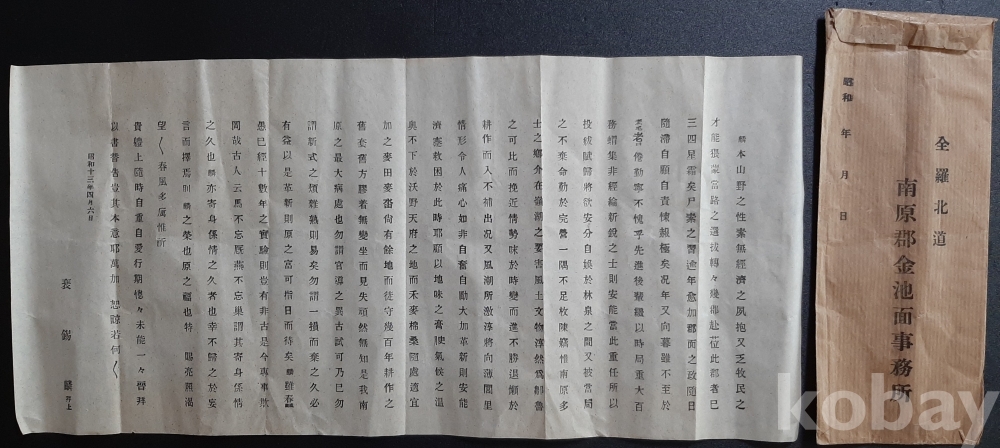 麟本山野之性素無經濟之夙抱又乏牧民之
才能猥蒙當路之選拔轉々幾郡赴莅此郡者已
三四星霜矣尸素之譏逾年愈加郡面之政隨日
隨滯自顧自責悚赧極矣况年又向暮雖不至於
老者倦勤寧不愧乎先進後輩纔以時局重大百
務蝟集非經綸新銳之士則安能當此重任所以
投紱賦歸將欲安分自娛於林泉之間又被當局
之不棄命勤於完營一隅不足枚陳條惟南原多
士之鄕介在嶺湖之要害風土文物淳然爲鄒魯
之可比而挽近情勢昧於時變而進不勝退懶於
耕作而入不補出况又風潮所激淳將向薄閭里
情形令人痛心如非自奮自動大加革新則安能
濟塗救困於此時耶顧以地味之膏腴氣候之溫
奧不下於沃野天府之地而禾麥棉桑隨處適宜
加之麥田麥畓尙有餘地而徒守幾百年耕作之
舊套舊方膠着無變坐而見失頑然無知是我南
原之最大病處也勿謂官導之異古試可乃已勿
謂新式之煩雜熟則易矣勿謂一損而棄之久必
有益以是革新則原之富可指日而待矣麟雖
愚已經十數年之實驗則豈有非古是今專事欺
罔故古人云馬不忘厩燕不忘巢謂其寄身係情
之久也麟亦寄身係情之久者也幸不歸之於妄
言而擇焉則麟之榮也原之福也特賜亮照渴
望〱春風多厲惟祈
貴體上隨時自重自愛行期悤々未能一々晉拜
以書替告豈其本意耶萬加恕諒若何〱
昭和十三年四月六日
裵錫麟 再上
全羅北道
南原郡金池面事務所
昭和 年 月 日
kobay